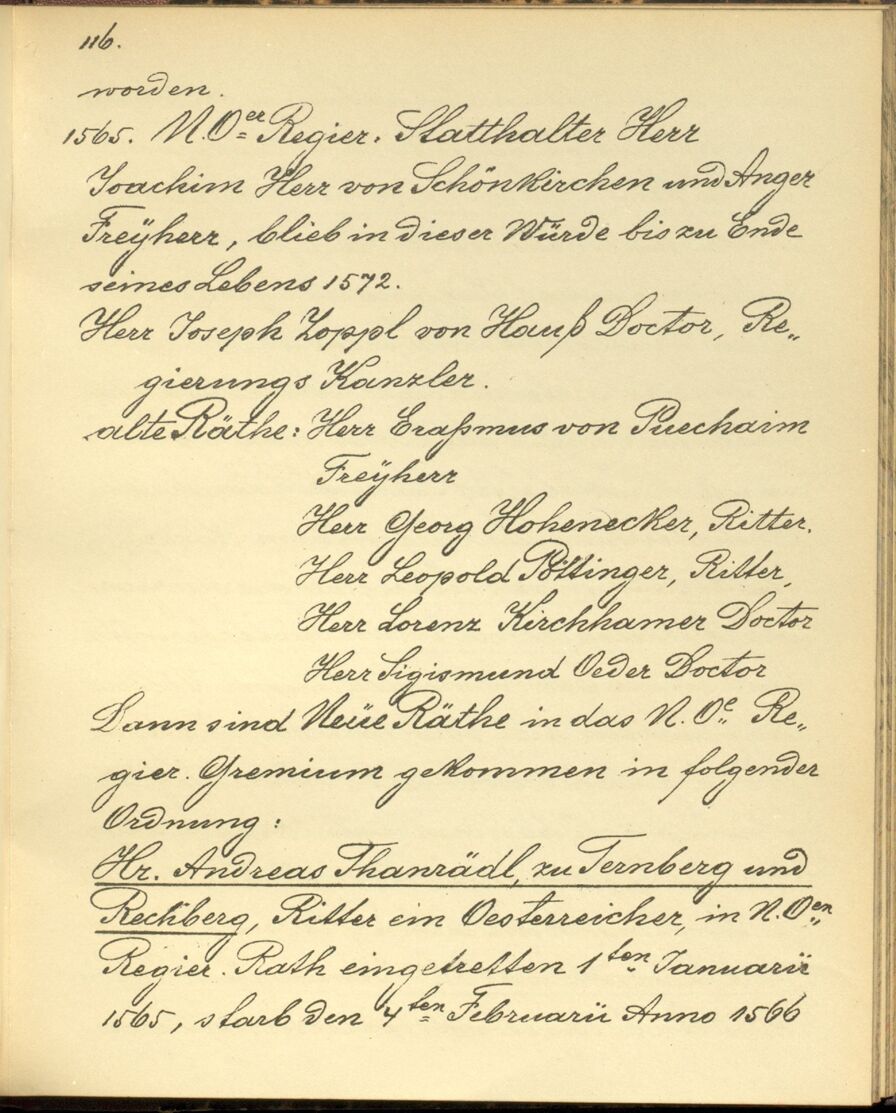 116.
worden.
1565. N. Oer Regier. Statthalter Herr
Joachim Herr von Schönkirchen und Anger
Freÿherr, blieb in dieser Würde bis zu Ende
seines Lebens 1572.
Herr Joseph Zoppl von Hauß Doctor, Re„
gierungs Kanzler.
alte Räthe: Herr Eraßmus von Puechaim
Freÿherr
Herr Georg Hohenecker, Ritter.
Herr Leopold Pöttinger, Ritter,
Herr Lorenz Kirchhamer Doctor
Herr Sigismund Oeder Doctor
Dann sind Neüe Räthe in das N. Oe„ Re„
gier. Gremium gekommen in folgender
Ordnung:
Hr. Andreas Thanrädl, zu Ternberg und
Rechberg, Ritter ein Oesterreicher, in N. Oen„
Regier. Rath eingetretten 1ten Januarii
1565, starb den 4ten Februarii Anno 1566